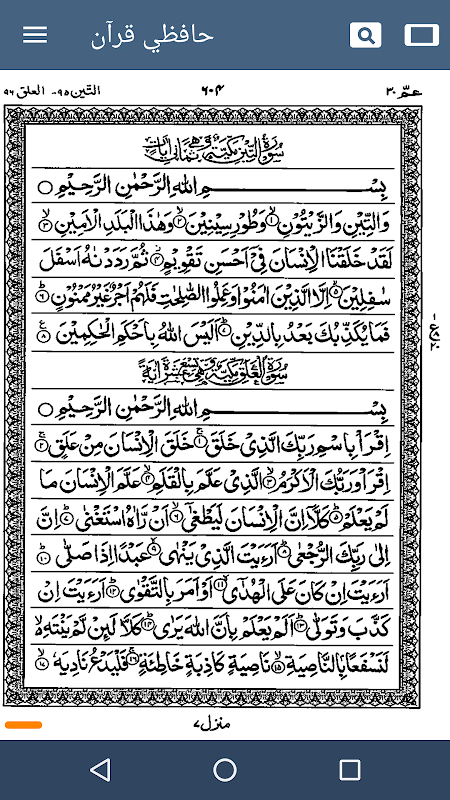 حافظي قرآن
عمّ ٣٠
٦٠٤
التين ٩٥- العلق ٩٦
سُوْرَةُ التِّيْنِ مَكِّيَّةٌ وَّهِيَ ثَمَانِ اٰيَاتٍ
بِسْــــــمِ اللّٰهِ الرَّحْمٰنِ الرَّحِيْمِ ○
وَالتِّيْنِ وَالزَّيْتُوْنِ ۙ﴿١﴾ وَطُوْرِ سِيْنِيْنَ ۙ﴿٢﴾ وَهٰذَا الْبَلَدِ الْاَمِيْنِ ۙ﴿٣﴾
لَقَدْ خَلَقْنَا الْاِنْسَانَ فِيْٓ اَحْسَنِ تَقْوِيْمٍ ۫﴿٤﴾ ثُمَّ رَدَدْنٰهُ اَسْفَلَ
سٰفِلِيْنَ ۙ﴿٥﴾ اِلَّا الَّذِيْنَ اٰمَنُوْا وَعَمِلُوا الصّٰلِحٰتِ فَلَهُمْ اَجْرٌ غَيْرُ مَمْنُوْنٍ ؕ﴿٦﴾
فَمَا يُكَذِّبُكَ بَعْدُ بِالدِّيْنِ ؕ﴿٧﴾ اَلَيْسَ اللّٰهُ بِاَحْكَمِ الْحٰكِمِيْنَ ﴿٨﴾
سُوْرَةُ الْعَلَقِ مَكِّيَّةٌ وَّهِيَ تِسْعَ عَشْرَةَ اٰيَةً
بِسْــــــمِ اللّٰهِ الرَّحْمٰنِ الرَّحِيْمِ ○
اِقْرَاْ بِاسْمِ رَبِّكَ الَّذِيْ خَلَقَ ۚ﴿١﴾ خَلَقَ الْاِنْسَانَ مِنْ عَلَقٍ ۚ﴿٢﴾
اِقْرَاْ وَرَبُّكَ الْاَكْرَمُ ۙ﴿٣﴾ الَّذِيْ عَلَّمَ بِالْقَلَمِ ۙ﴿٤﴾ عَلَّمَ الْاِنْسَانَ مَا
لَمْ يَعْلَمْ ؕ﴿٥﴾ كَلَّآ اِنَّ الْاِنْسَانَ لَيَطْغٰٓى ۙ﴿٦﴾ اَنْ رَّاٰهُ اسْتَغْنٰى ؕ﴿٧﴾ اِنَّ
اِلٰى رَبِّكَ الرُّجْعٰى ؕ﴿٨﴾ اَرَءَيْتَ الَّذِيْ يَنْهٰى ۙ﴿٩﴾ عَبْدًا اِذَا صَلّٰى ؕ﴿١٠﴾
اَرَءَيْتَ اِنْ كَانَ عَلَى الْهُدٰٓى ۙ﴿١١﴾ اَوْ اَمَرَ بِالتَّقْوٰى ؕ﴿١٢﴾ اَرَءَيْتَ اِنْ
كَذَّبَ وَتَوَلّٰى ؕ﴿١٣﴾ اَلَمْ يَعْلَمْ بِاَنَّ اللّٰهَ يَرٰى ؕ﴿١٤﴾ كَلَّا لَىِٕنْ لَّمْ يَنْتَهِ ۙ
لَنَسْفَعًاۢ بِالنَّاصِيَةِ ۙ﴿١٥﴾ نَاصِيَةٍ كَاذِبَةٍ خَاطِئَةٍ ۚ﴿١٦﴾ فَلْيَدْعُ نَادِيَهٗ ۙ﴿١٧﴾
منزل ٧